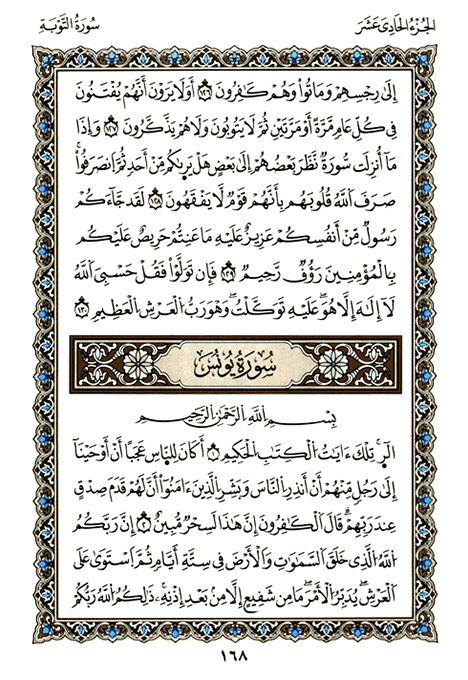 الجُزْءُ الحَادِى عَشَرَ
سُورَةُ التَّوْبَةِ
إِلَىٰ رِجْسِهِمْ وَمَاتُوا۟ وَهُمْ كَـٰفِرُونَ ١٢٦ أَوَلَا يَرَوْنَ أَنَّهُمْ يُفْتَنُونَ
فِى كُلِّ عَامٍ مَّرَّةً أَوْ مَرَّتَيْنِ ثُمَّ لَا يَتُوبُونَ وَلَا هُمْ يَذَّكَّرُونَ ١٢٧ وَإِذَا
مَآ أُنزِلَتْ سُورَةٌ نَّظَرَ بَعْضُهُمْ إِلَىٰ بَعْضٍ هَلْ يَرَىٰكُم مِّنْ أَحَدٍ ثُمَّ ٱنصَرَفُوا۟ۚ
صَرَفَ ٱللَّهُ قُلُوبَهُم بِأَنَّهُمْ قَوْمٌ لَّا يَفْقَهُونَ ١٢٨ لَقَدْ جَآءَكُمْ
رَسُولٌ مِّنْ أَنفُسِكُمْ عَزِيزٌ عَلَيْهِ مَا عَنِتُّمْ حَرِيصٌ عَلَيْكُم
بِٱلْمُؤْمِنِينَ رَؤُفٌ رَّحِيمٌ ١٢٩ فَإِن تَوَلَّوْا۟ فَقُلْ حَسْبِىَ ٱللَّهُ
لَآ إِلَـٰهَ إِلَّا هُوَۖ عَلَيْهِ تَوَكَّلْتُۖ وَهُوَ رَبُّ ٱلْعَرْشِ ٱلْعَظِيمِ ١٣٠
سُورَةُ يُونُسَ
بِسْمِ ٱللَّهِ ٱلرَّحْمَـٰنِ ٱلرَّحِيمِ
الٓرۚ تِلْكَ ءَايَـٰتُ ٱلْكِتَـٰبِ ٱلْحَكِيمِ ١ أَكَانَ لِلنَّاسِ عَجَبًا أَنْ أَوْحَيْنَآ
إِلَىٰ رَجُلٍ مِّنْهُمْ أَنْ أَنذِرِ ٱلنَّاسَ وَبَشِّرِ ٱلَّذِينَ ءَامَنُوٓا۟ أَنَّ لَهُمْ قَدَمَ صِدْقٍ
عِندَ رَبِّهِمْۗ قَالَ ٱلْكَـٰفِرُونَ إِنَّ هَـٰذَا لَسِحْرٌ مُّبِينٌ ٢ إِنَّ رَبَّكُمُ
ٱللَّهُ ٱلَّذِى خَلَقَ ٱلسَّمَـٰوَٰتِ وَٱلْأَرْضَ فِى سِتَّةِ أَيَّامٍ ثُمَّ ٱسْتَوَىٰ عَلَى
ٱلْعَرْشِۖ يُدَبِّرُ ٱلْأَمْرَۖ مَا مِن شَفِيعٍ إِلَّا مِنۢ بَعْدِ إِذْنِهِۦۚ ذَٰلِكُمُ ٱللَّهُ رَبُّكُمْ
١٦٨